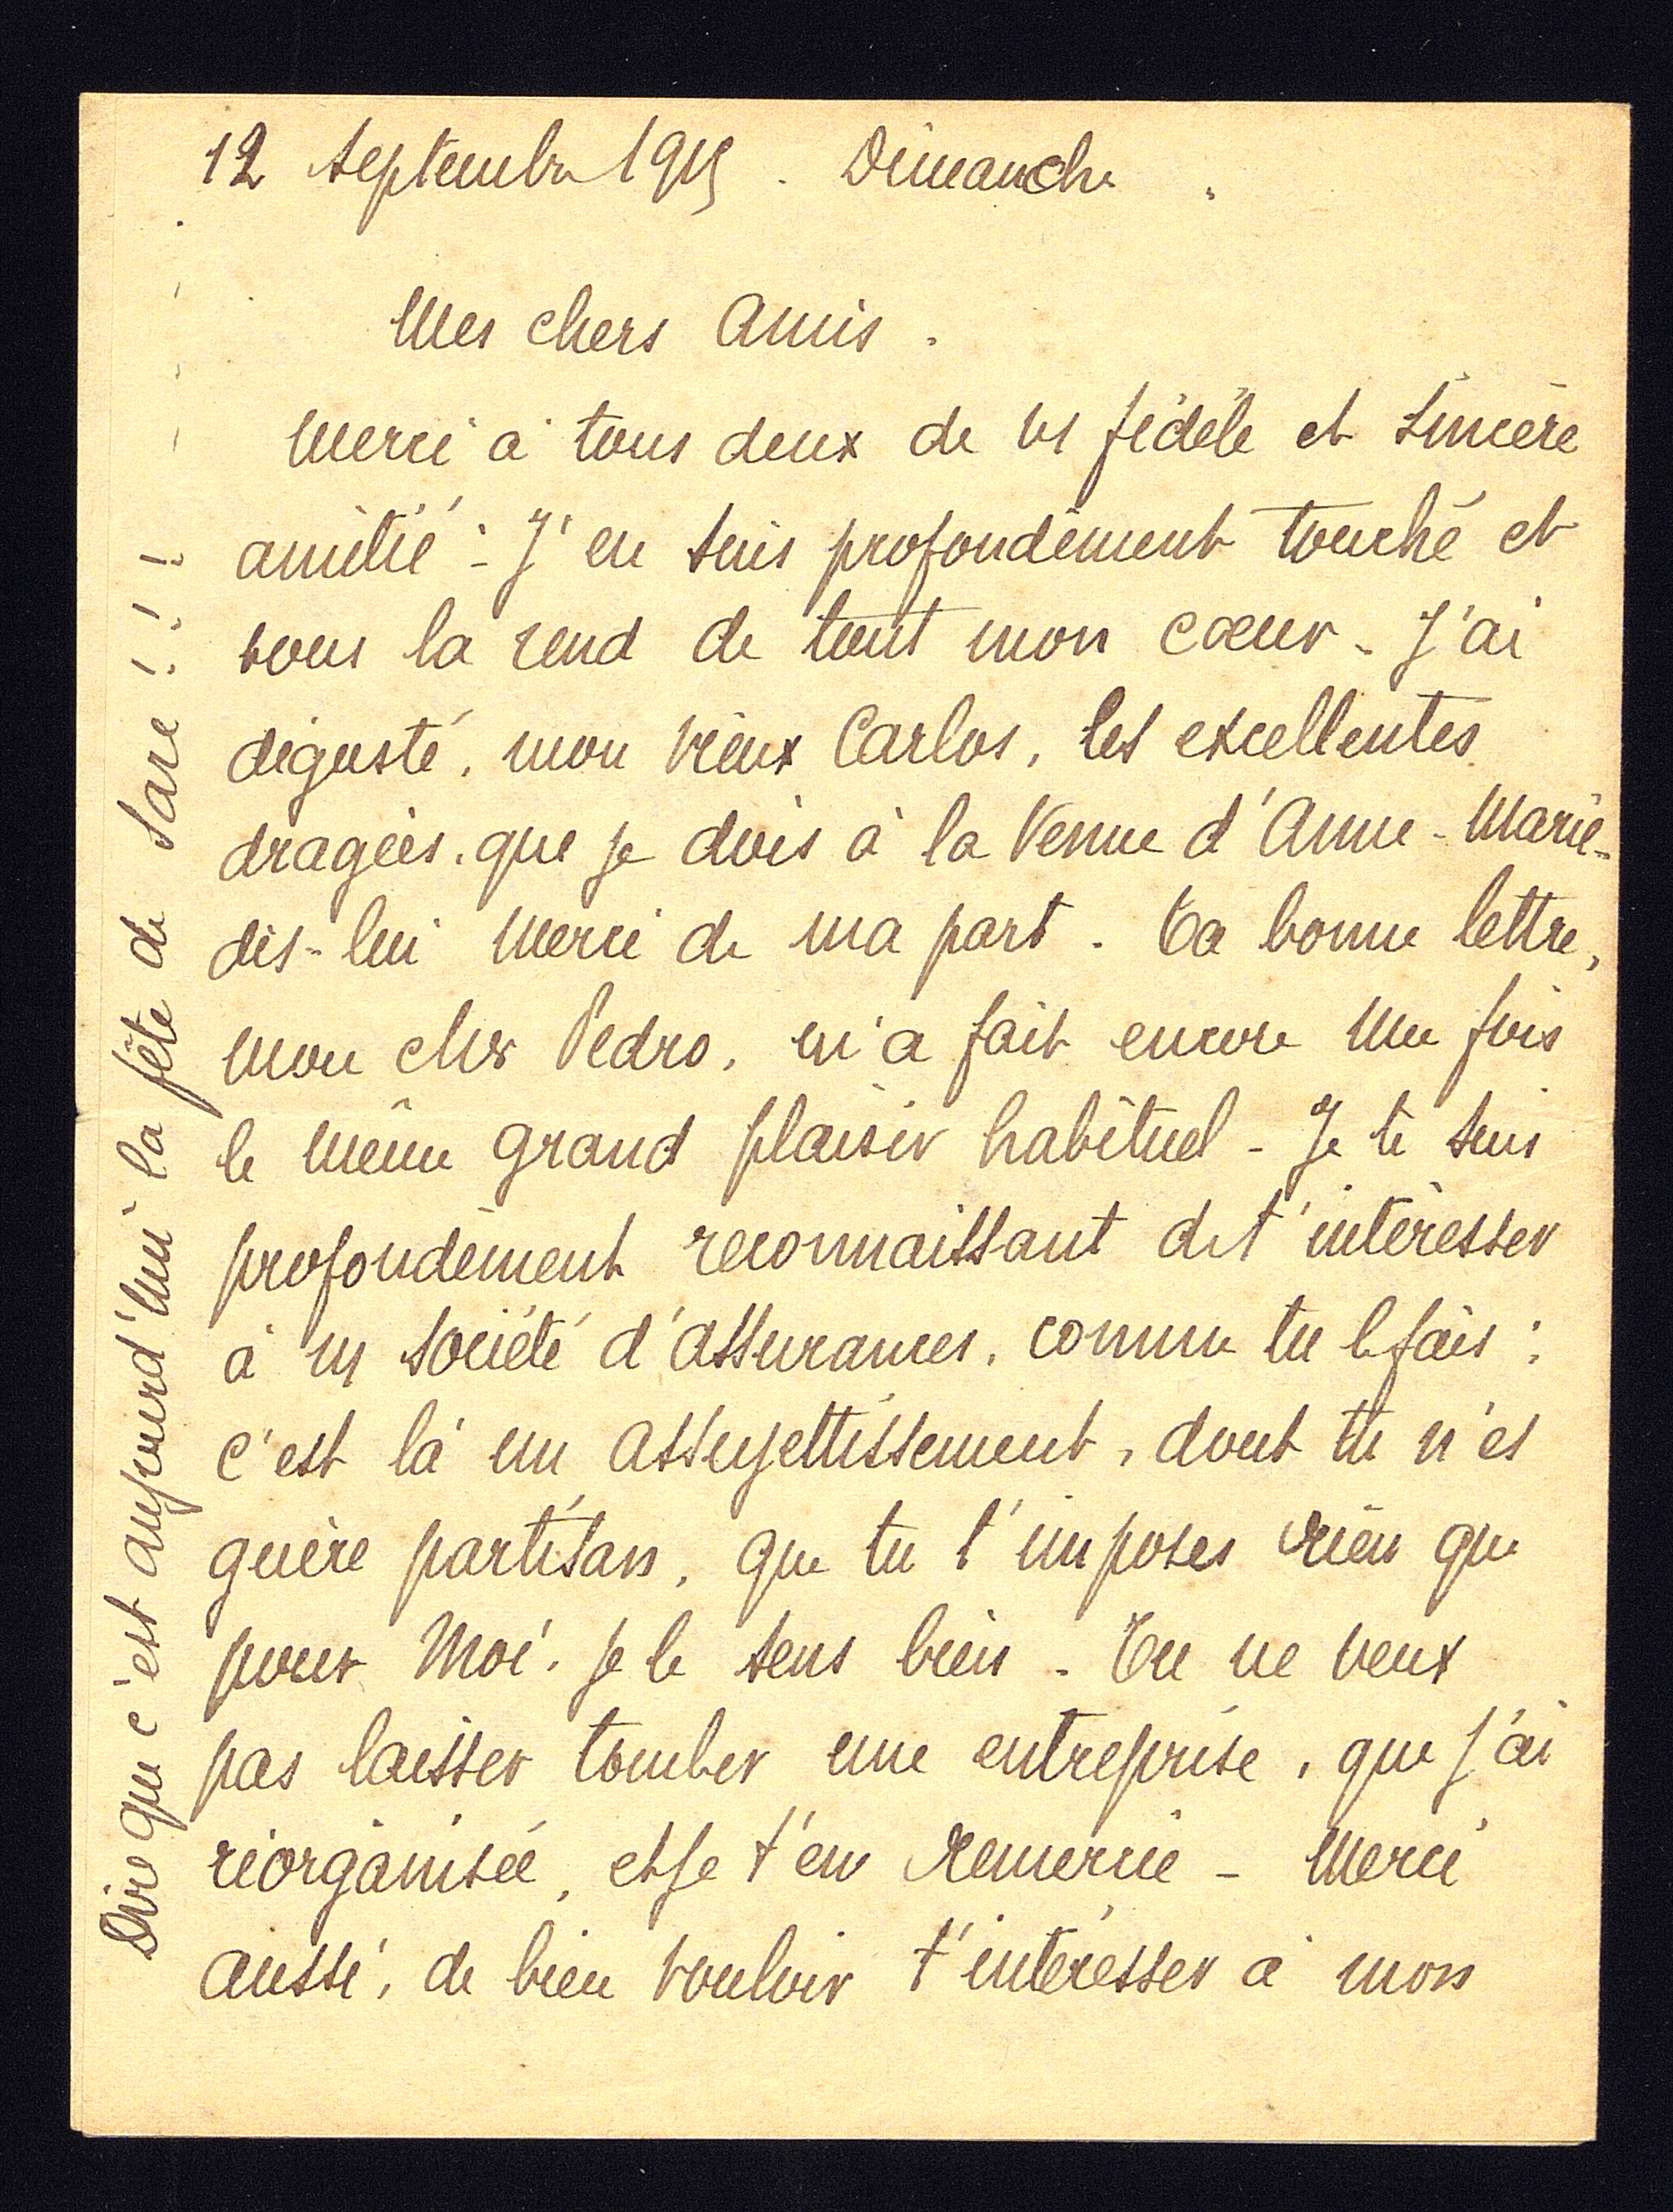 12 Septembre 1915. Dimanche.
Mes chers Amis.
Merci à tous deux de vs fidèle et sincère
amitié : J'en suis profondément touché et
vous la rend de tout mon cœur - J'ai
dégusté, mon vieux Carlos, les excellentes
dragées, que je dois à la Venue d'Anne-Marie -
dis-lui Merci de ma part. Ta bonne lettre,
mon cher Pedro, m'a fait encore une fois
le même grand plaisir habituel - Je te suis
profondément reconnaissant de t'intéresser
à ns société d'assurances, comme tu le fais :
c'est là un assujettissement, dont tu n'es
guère partisan, que tu t'imposes rien que
pour Moi, je le sens bien - Tu ne veux
pas laisser tomber une entreprise, que j'ai
réorganisée, et je t'en remercie - Merci
aussi, de bien vouloir t'intéresser à mon
Dire que c'est aujourd'hui la fête de Sare !!!